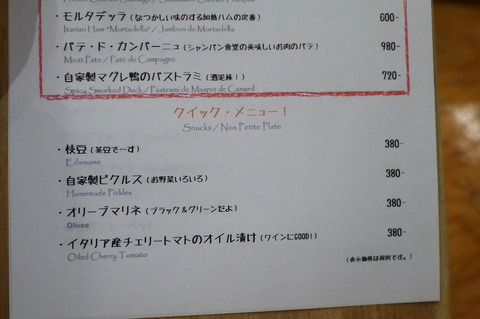 ・モルタデッラ(なつかしい味のする加熱ハムの定番) 600-
Itarian Ham "Mortadella" / Jambon de Mortadella
・パテ・ド・カンパーニュ(シャンパン食堂の美味しいお肉のパテ) 980-
Meat Pate / Paté de Campagne
・自家製マグレ鴨のパストラミ(酒泥棒!) 720-
Spicy Smorked Duck / Pastrami de Magret de Canard
クイック・メニュー!
Snacks / Nos Petite Plate
・枝豆(茶豆でーす) 380-
Edamame
・自家製ピクルス(お野菜いろいろ) 380-
Homemade Pickles
・オリーブマリネ(ブラック&グリーンだよ) 380-
Olives
・イタリア産チェリートマトのオイル漬け(ワインにGOOD!) 380-
Oiled Cherry Tomato
(表示価格は税別です。)